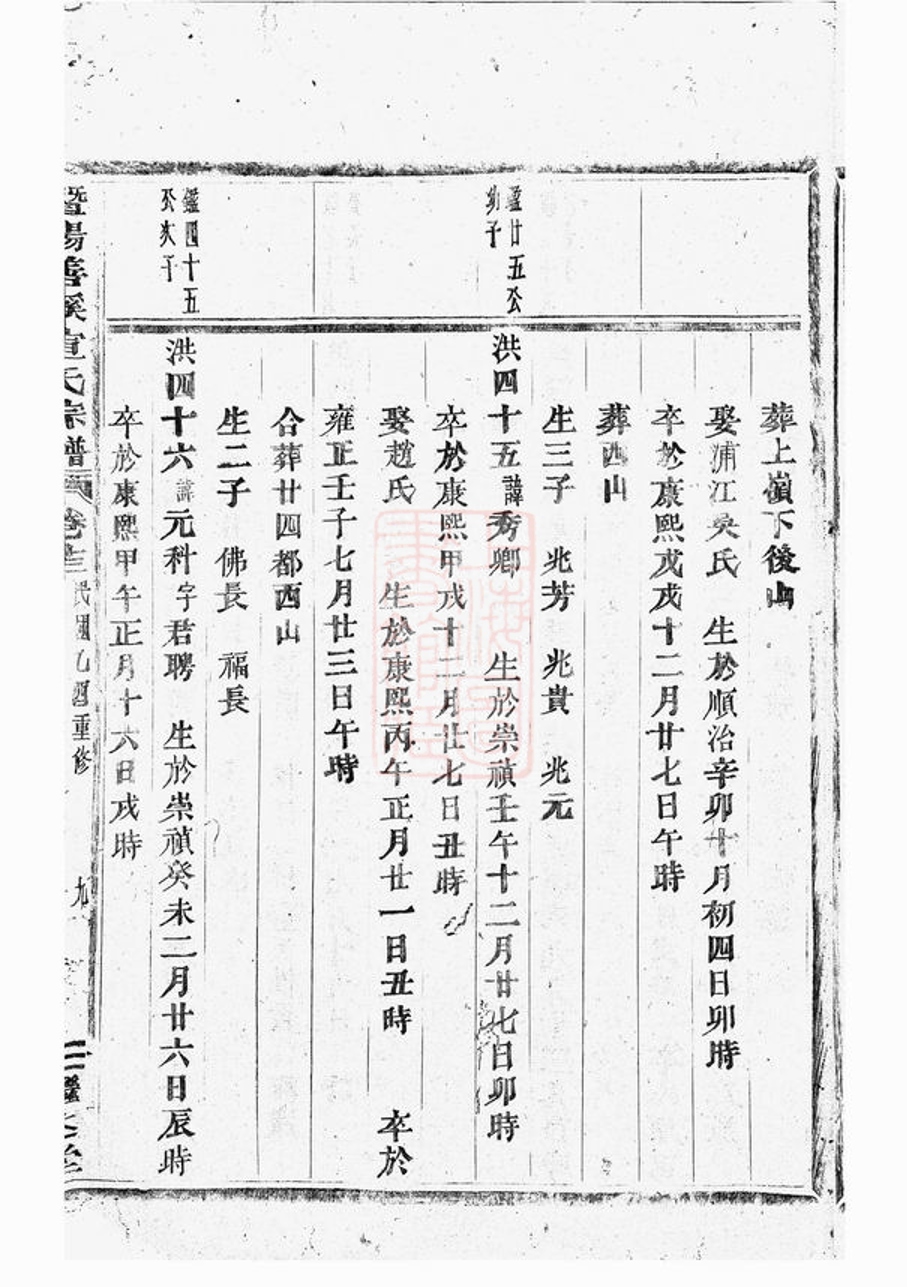 葬上嶺下後山
娶浦江吳氏　生於順治辛卯十月初四日卯時
卒於康熙戊戌十二月廿七日午時
葬西山
生三子　兆芳　兆貴　兆元
鑑廿五公
幼子
洪四十五諱秀卿　生於崇禎壬午十二月廿七日卯時
卒於康熙甲戌十二月廿七日丑時
娶趙氏　生於康熙丙午正月廿一日丑時　卒於
雍正壬子七月廿三日午時
合葬廿四都西山
生二子　佛長　福長
鑑四十五
公次子
洪四十六諱元科字君聘　生於崇禎癸未二月廿六日辰時
卒於康熙甲午正月十六日戌時
暨陽善溪宣氏宗譜 卷 民國乙酉重修 九